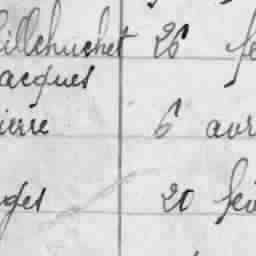 illehuchet 26 fe
acques
ierre 6 avr
ges 20 fév